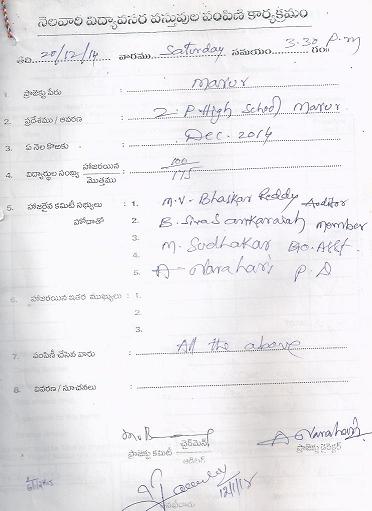 నెలవారి విద్యావసర వస్తువుల పంపిణి కార్యక్రమం
తేది. 20/12/14 వారము Saturday సమయం 3.30 P.m గం॥
1. ప్రాజెక్టు పేరు : Marur
2. ప్రదేశము / ఆవరణ : Z.P. High School Marur.
3. ఏ నెల కొఱకు : Dec. 2014
4. విద్యార్థుల సంఖ్య హాజరయిన / మొత్తము : 100 / 175
5. హాజరైన కమిటీ సభ్యులు : 1. M.V. Bhaskar Reddy Auditor
హోదాతో 2. B. Siva Sankaraiah Member
3. M. Sudhakar
4.
5. A. Narahari P.D
6. హాజరయిన ఇతర ముఖ్యులు : 1.
2.
3.
7. పంపిణీ చేసిన వారు : All the above
8. వివరణ / సూచనలు :
చైర్‌మెన్
ప్రాజెక్టు కమిటీ ఆడిటర్
A Narahari
ప్రాజెక్టు డైరెక్టర్
12/1/15